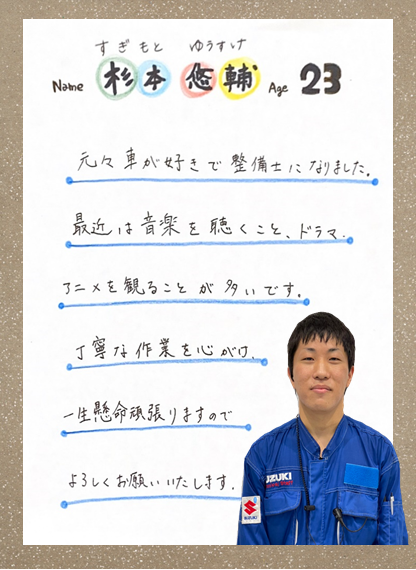 すぎもと ゆうすけ
Name 杉本 悠輔 Age 23
元々車が好きで整備士になりました。
最近は音楽を聴くこと、ドラマ.
アニメを観ることが多いです。
丁寧な作業を心がけ.
一生懸命頑張りますので
よろしくお願いいたします.
UZUKI
SUZUKI